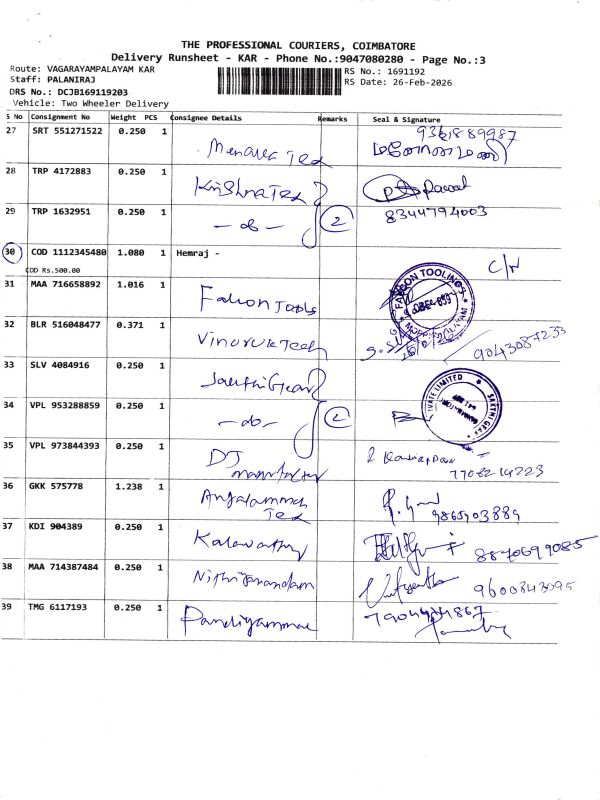 THE PROFESSIONAL COURIERS, COIMBATORE
Delivery Runsheet - KAR - Phone No.:9047080280 - Page No.:3
Route: VAGARAYAMPALAYAM KAR
RS No.: 1691192
Staff: PALANIRAJ
RS Date: 26-Feb-2026
DRS No.: DCJB169119203
Vehicle: Two Wheeler Delivery
S No Consignment No Weight PCS Consignee Details Remarks Seal & Signature
27 SRT 551271522 0.250 1
28 TRP 4172883 0.250 1 Krishna Tex
29 TRP 1632951 0.250 1 - do - 2 8344794003
30 COD 1112345480 1.080 1 Hemraj -
COD Rs.500.00
C/N
31 MAA 716658892 1.016 1 Falcon Tools FALCON TOOLINGS
32 BLR 516048477 0.371 1 Vinayak Tech 9043087233
33 SLV 4084916 0.250 1 Sakthi Gear
34 VPL 953288859 0.250 1 - do - 2
35 VPL 973844393 0.250 1 DJ
7708214223
36 GKK 575778 1.238 1 Angalamman
Tex 9865903889
37 KDI 904389 0.250 1 Kalavathy 8870699085
38 MAA 714387484 0.250 1 Nithiyanandam 9600843095
39 TMG 6117193 0.250 1 Pandiyammal 7904414867